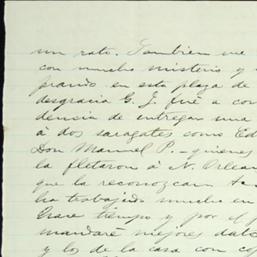 un rato. Tambien me
con mucho misterio y
prando en esta plaza de
desgracia G. J. fué a con
dencia de entregar una
á dos saragates como Ed
Don Manuel P. - quienes
la fletaron á N. Orlean
que la reconozcan
ha trabajado mucho en
tiempo y por el
mandaré mejores datos
y los de la casa con